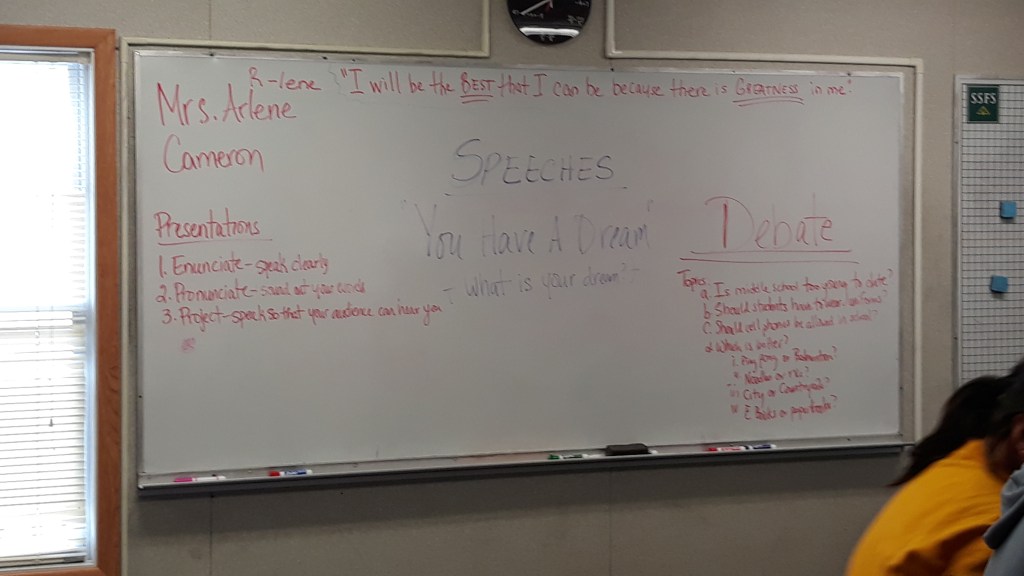 R-lene
Mrs. Arlene
Cameron
"I will be the BEST that I can be because there is GREATNESS in me!
SPEECHES
"You Have A Dream"
- What is your dream? -
Presentations
1. Enunciate - speak clearly
2. Pronunciate - sound out your words
3. Project - speak so that your audience can hear you
Debate
Topics:
a. Is middle school too young to date?
b. Should students have to wear uniforms?
c. Should cell phones be allowed in school?
d. Which is better?
i. Ping pong or Badminton?
ii. Noodles or rice?
iii. City or Countryside?
iv. E Books or paper books?
SSFS